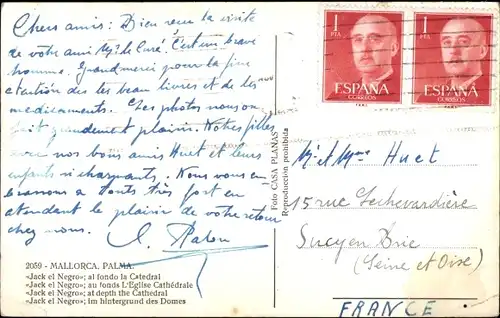 Chers amis: Bien reçu la visite
de votre ami Mr. le Curé. C'est un brave
homme. Grand merci pour la fine
attention des beau livres et de les
medicaments. Les photos nous on
fait grandement plaisir. Notres filles
avec nos bons amis Huet et leurs
enfants si charmants. Nous vous em-
brassons a touts très fort en
attendant le plaisir de votre retour
chez nous.
2059 - MALLORCA, PALMA.
«Jack el Negro»; al fondo la Catedral
«Jack el Negro»; au fonds L'Eglise Cathédrale
«Jack el Negro»; at depth the Cathedral
«Jack el Negro»; im hintergrund des Domes
Foto CASA PLANAS
Reproducción prohibida
1
PTA
ESPAÑA
CORREOS
1
PTA
ESPAÑA
CORREOS
Mr et Mme Huet
15 rue Lechevardière
Sucy en Brie
(Seine et Oise)
FRANCE